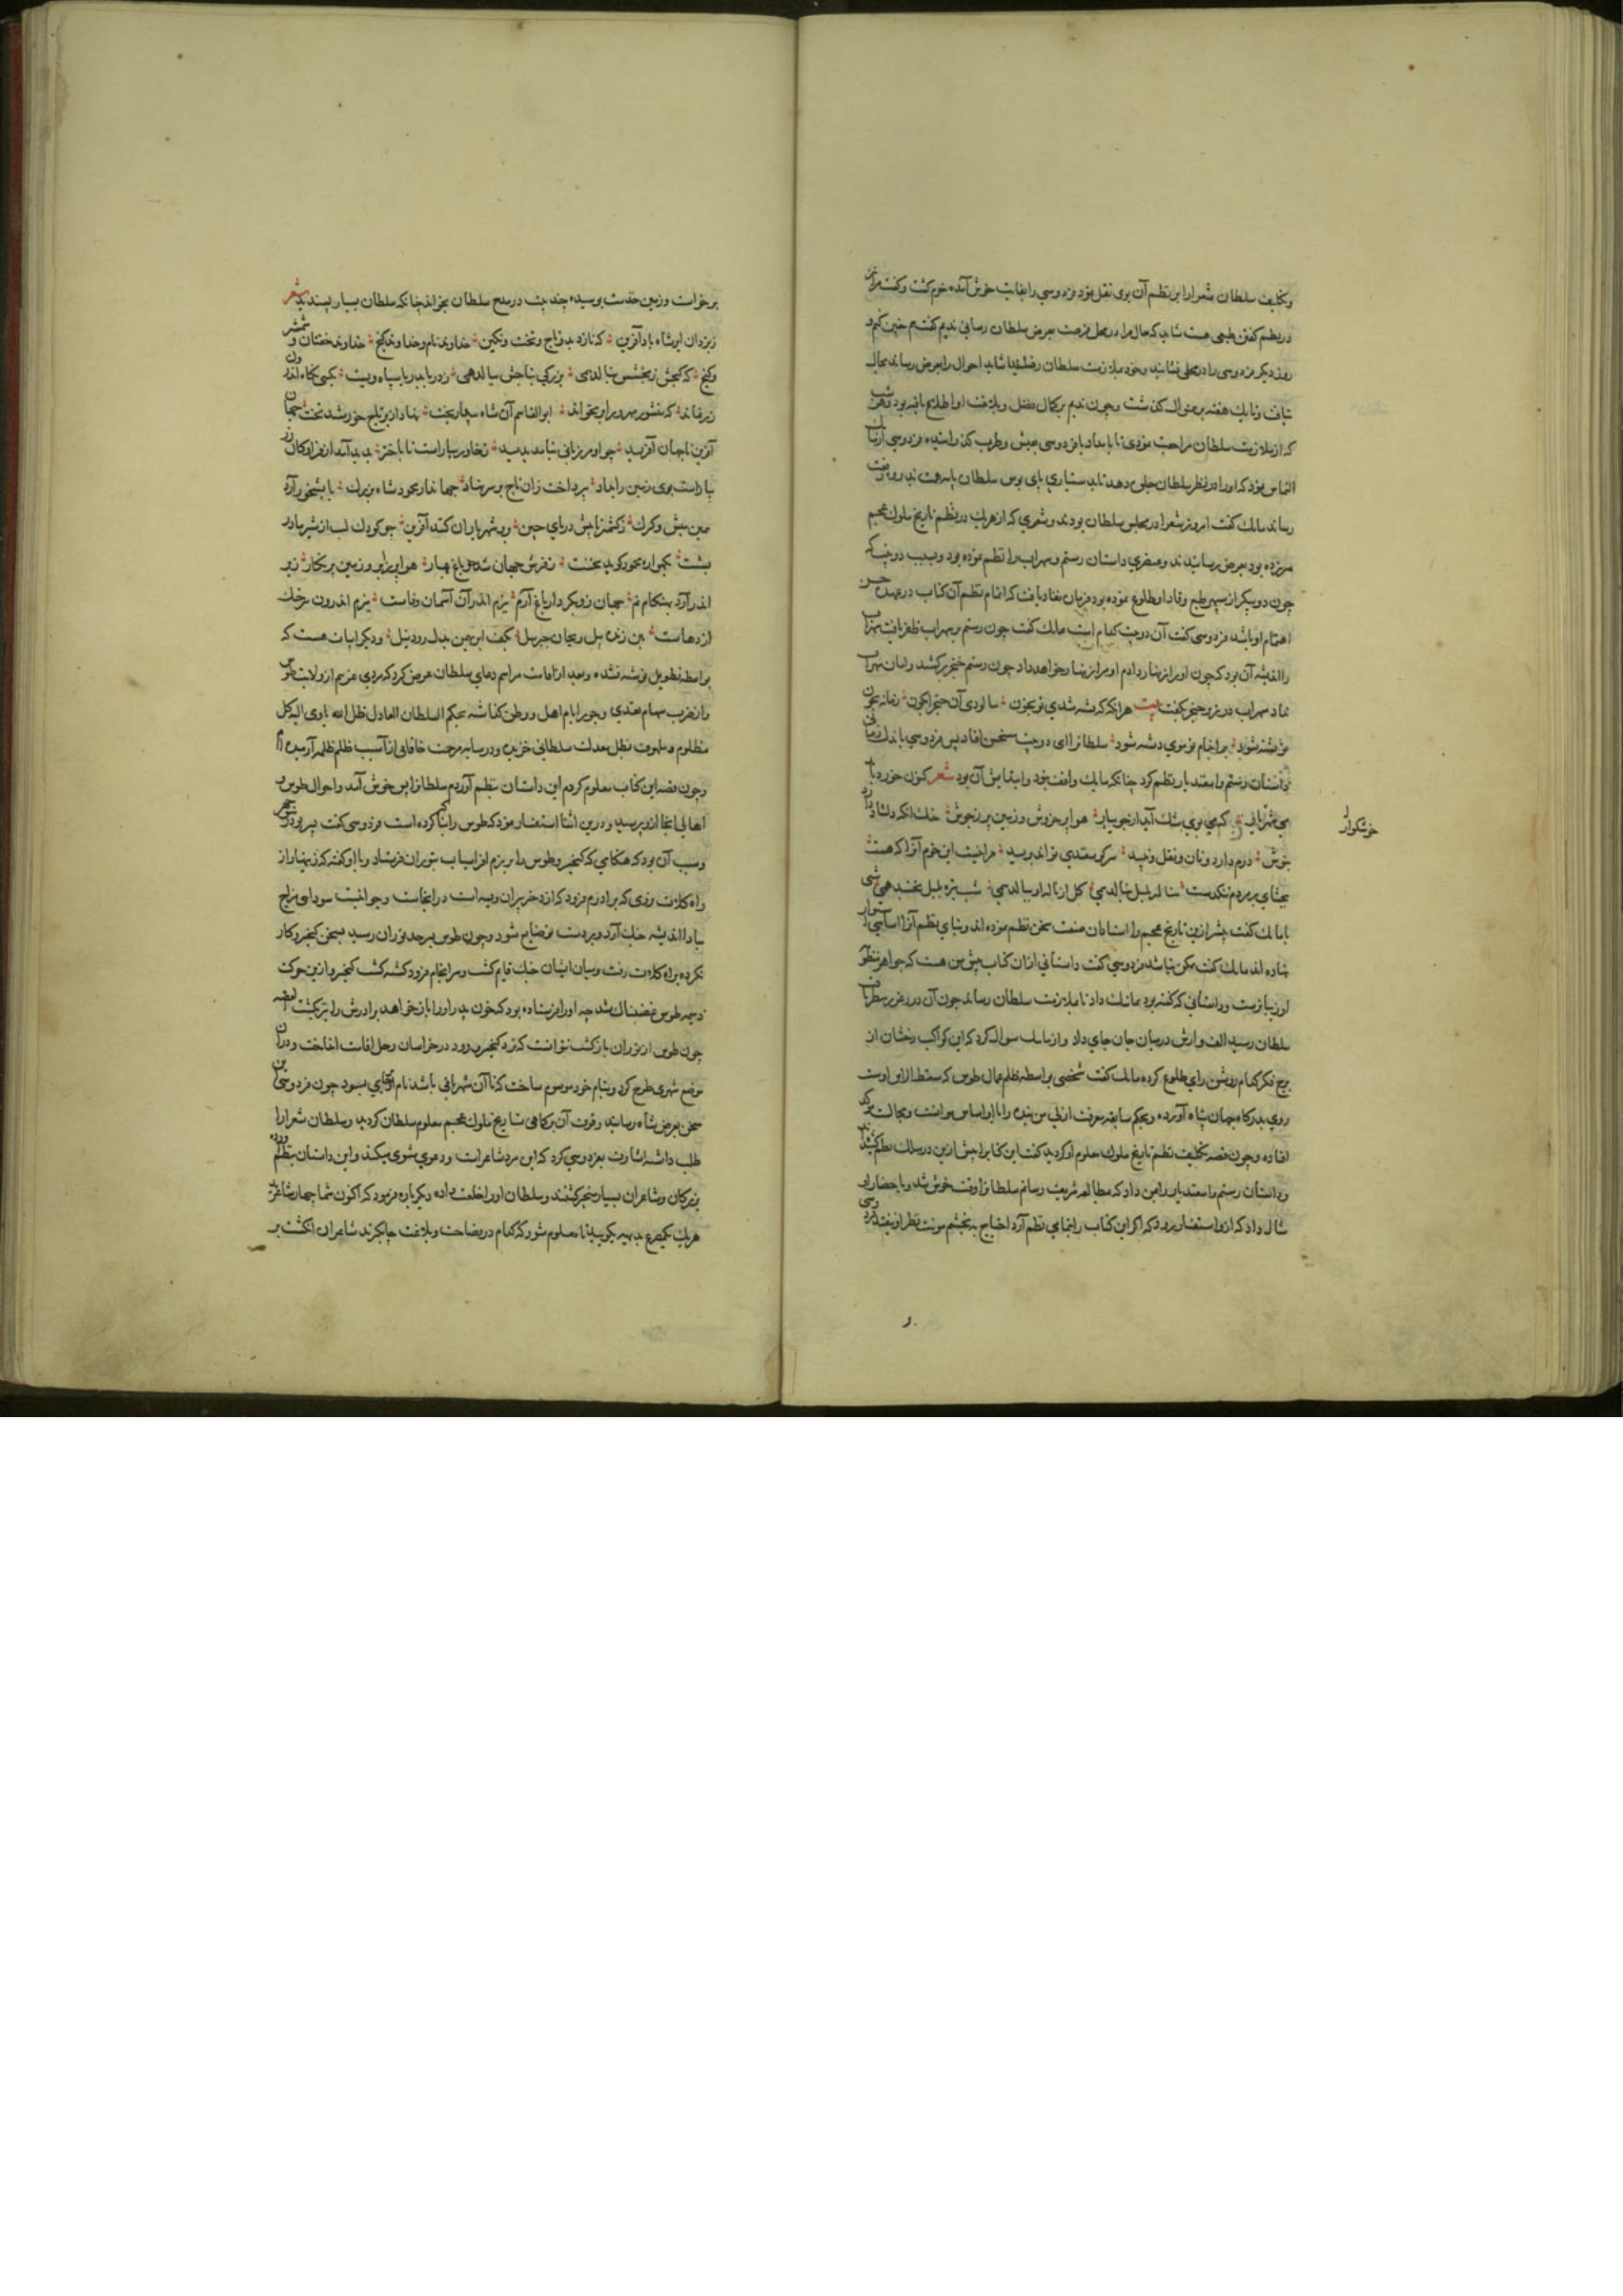 وتکلیف سلطان شعرا را بر نظم آن بوی نقل نمود فردوسی را بغایت خوش آمده خرم کشت وکفت مرا نیز
در نظم کفتن طبعی هست شاید که حال مرا در محل فرصت بعرض سلطان رسانی ندیم کفت هم چنین کنم و
روز دیکر فردوسی را در محلی نشانید وخود بملازمت سلطان رفت شاید احوال را بعرض رساند مجال
نیافت وتا یک هفته برین منوال کذشت وچون ندیم بر کمال فضل وبلاغت او اطلاع یافته بود هر شب
که از ملازمت سلطان مراجعت نمودی تا بامداد با فردوسی بعیش وطرب کذرانیدی فردوسی از ماهک
التماس نمود که او را در نظر سلطان جلوه دهد تا بدستیاری پای بوس سلطان پایه رفعت
رساند ماهک کفت امروز شعرا در مجلس سلطان بودند وشعری که از هر یک در نظم تاریخ ملوک عجم
سر زده بود بعرض رسانیدند وعنصری داستان رستم وسهراب را نظم نموده بود وبسبب دو بیت که
چون دو پیکر از سپهر طبع وقاد او طلوع نموده بود فرمان نفاذ یافت که اتمام نظم آن کتاب در عهده حسن
اهتمام او باشد فردوسی کفت آن دو بیت کدام است ماهک کفت چون رستم بر سهراب ظفر یافت سهراب
را اندیشه آن بود که چون او را زنهار دادم او مرا زنهار خواهد داد چون رستم خنجر برکشید وامان سهراب
نداد سهراب در زیر خنجر کفت بیت هر آنکه که تشنه شدی تو بخون ؛ بیالودی آن خنجر آبکون ؛ زمانه بخون
تو تشنه شود ؛ بر اندام تو موی دشنه شود ؛ سلطان را این دو بیت مستحسن افتاد پس فردوسی باندک زمانی
داستان رستم واسفندیار نظم کرد چنانکه ماهک واقف نبود وابتدایش آن بود شعر کنون خورد باید
می خوشکوار ؛ که می بوی مشک آید از جویبار ؛ هوا پر خروش وزمین پر ز جوش ؛ خنک آنکه دل شاد دارد
بنوش ؛ درم دارد ونان ونقل ونبید ؛ سر کوسفندی تواند برید ؛ مرا نیست این خرم آنرا که هست
ببخشای بر مردم تنکدست ؛ بنالد بلبل بنالد همی ؛ کل از ناله او ببالد همی ؛ شب تیره بلبل نخسبد همی شبی
با ماهک کفت پیش ازین تاریخ عجم را استادان صنعت سخن نظم نموده اند وبنای نظم آنرا اساسی استوار
نهاده اند ماهک کفت ممکن نباشد فردوسی کفت داستانی ازان کتاب پیش من هست که جواهر منظوم
او زیباترست وداستانی که کفته بود بماهک داد تا بملازمت سلطان رساند چون آن درر غرر بنظر
سلطان رسید الف وارش در میان جان جای داد واز ماهک سوال کرد که این کواکب رخشان از
برج فکر کدام روشن رای طلوع کرده ماهک کفت شخصی بواسطه ظلم عمال طوس که مسقط الراس اوست
روی بدرکاه جهان پناه آورده وبحکم سابقه معرفت ازلی من بنده را با او اساس موانست ومجالست مؤکد
افتاده وچون قصه تکلیف نظم تاریخ ملوک معلوم او کردید کفت این کتاب را پیش ازین در سلک نظم کشیده اند
وداستان رستم واسفندیار را بمن داد که بمطالعه شریف رسانم سلطان را وقت خوش شد وباحضار او
مثال داد که ازو استفسار رود که اکر این کتاب را بتمامی نظم آرد احتیاج
خوشکوار
بر خواست وزمین خدمت بوسیده چند بیت در مدح سلطان بخواند چنانکه سلطان بسیار پسندید شعر
ز یزدان بر شاه باد آفرین ؛ که نازد بدو تاج وتخت ونکین ؛ خداوند نام وخداوند کنج ؛ خداوند خفتان وشمشیر
ورنج ؛ که کنجش ز بخشش بنالد همی ؛ بزرکی بنامش ببالد همی ؛ ز دریا بدریا سپاه ویست ؛ کیتی
زر نماند ؛ که منشور مهر ورا بر نخواند ؛ ابو القاسم آن شاه بیدار بخت ؛ نهاد از بر تاج خورشید تخت ؛ جهان
آفرین تا جهان آفرید ؛ چو او مرزبانی نیامد پدید ؛ ز خاور بیاراست تا باختر ؛ پدید آمد از فر او کان
بیاراست روی زمین را بداد ؛ بپرداخت زان تاج بر سر نهاد ؛ جهاندار محمود شاه بزرک ؛ بآبشخور آرد
همی میش وکرک ؛ ز کشمیر تا پیش دریای چین ؛ برو شهریاران کنند آفرین ؛ چو کودک لب از شیر مادر
بشست ؛ بکهواره محمود کوید نخست ؛ ز فرش جهان شد چو باغ بهار ؛ هوا پر ز ابر وزمین پر نکار ؛ ز ابر
اندر آرد بهنکام نم ؛ جهان شد بکردار باغ ارم ؛ ببزم اندر آن آسمان وفاست ؛ برزم اندرون تیز چنک
اژدهاست ؛ بتن زنده پیل وبجان جبرئیل ؛ بکف ابر بهمن بدل رود نیل ؛ ودیکر ابیات هست که
بواسطه تطویل نوشته نشد وبعد از اقامت مراسم دعای سلطان عرض کرد که مردی غریبم از ولایت طوس
واز ضرب سهام تعدی وجور ایام اهل ووطن کذاشته بحکم السلطان العادل ظل الله یاوی الیه کل
مظلوم وملهوف بظل معدلت سلطانی خزیده ودر سایه مرحمت خاقانی از آسیب ظلم ظلمه آرمیده ام
وچون قصه این کتاب معلوم کردم این داستان بنظم آوردم سلطان را بس خوش آمد واحوال طوس و
اهالی آنجا ازو پرسید ودرین اثنا استفسار نمود که طوس را که بنا کرده است فردوسی کفت پسر نوذر
وسبب آن بود که هنکامی که کیخسرو طوس را برزم افراسیاب بتوران فرستاد وبا او کفته که زنهار از
راه کلات نروی که برادرم فرود که از دختر پیران ویسه است در آنجاست وجوانیست سودایی مزاج
مبادا اندیشه جنک آرد وبر دست تو ضایع شود وچون طوس بسرحد توران رسید بسخن کیخسرو کار
نکرده براه کلات رفت ومیان ایشان جنک قایم کشت وسرانجام فرود کشته کشت کیخسرو ازین حرکت
ذمیمه طوس غضبناک شد چه او را فرستاده بود که خون پدر او را باز خواهد برادرش را نیز بکشت القصه
چون طوس از توران باز کشت نتوانست که نزد کیخسرو رود در خراسان رحل اقامت انداخت ودران
موضع شهری طرح کرد وبنام خود موسوم ساخت که تا آن شهر باقی باشد نام او بجای بود چون فردوسی این
سخن بعرض شاه رسانید وقوف آن بر کماهی تاریخ ملوک عجم معلوم سلطان کردید وسلطان شعرا را
طلب داشته اشارت بفردوسی کرد که این مرد شاعرست ودعوی مثنوی میکند واین داستان بنظم آورده
بزرکان وشاعران بسیار متحیر کشتند وسلطان او را خلعت داده دیکر باره فرمود که اکنون شما چهار شاعرید
هر یک یک مصرع بدیهه بکویید تا معلوم شود که کدام در فصاحت وبلاغت چابکترند شاعران انکشت بر